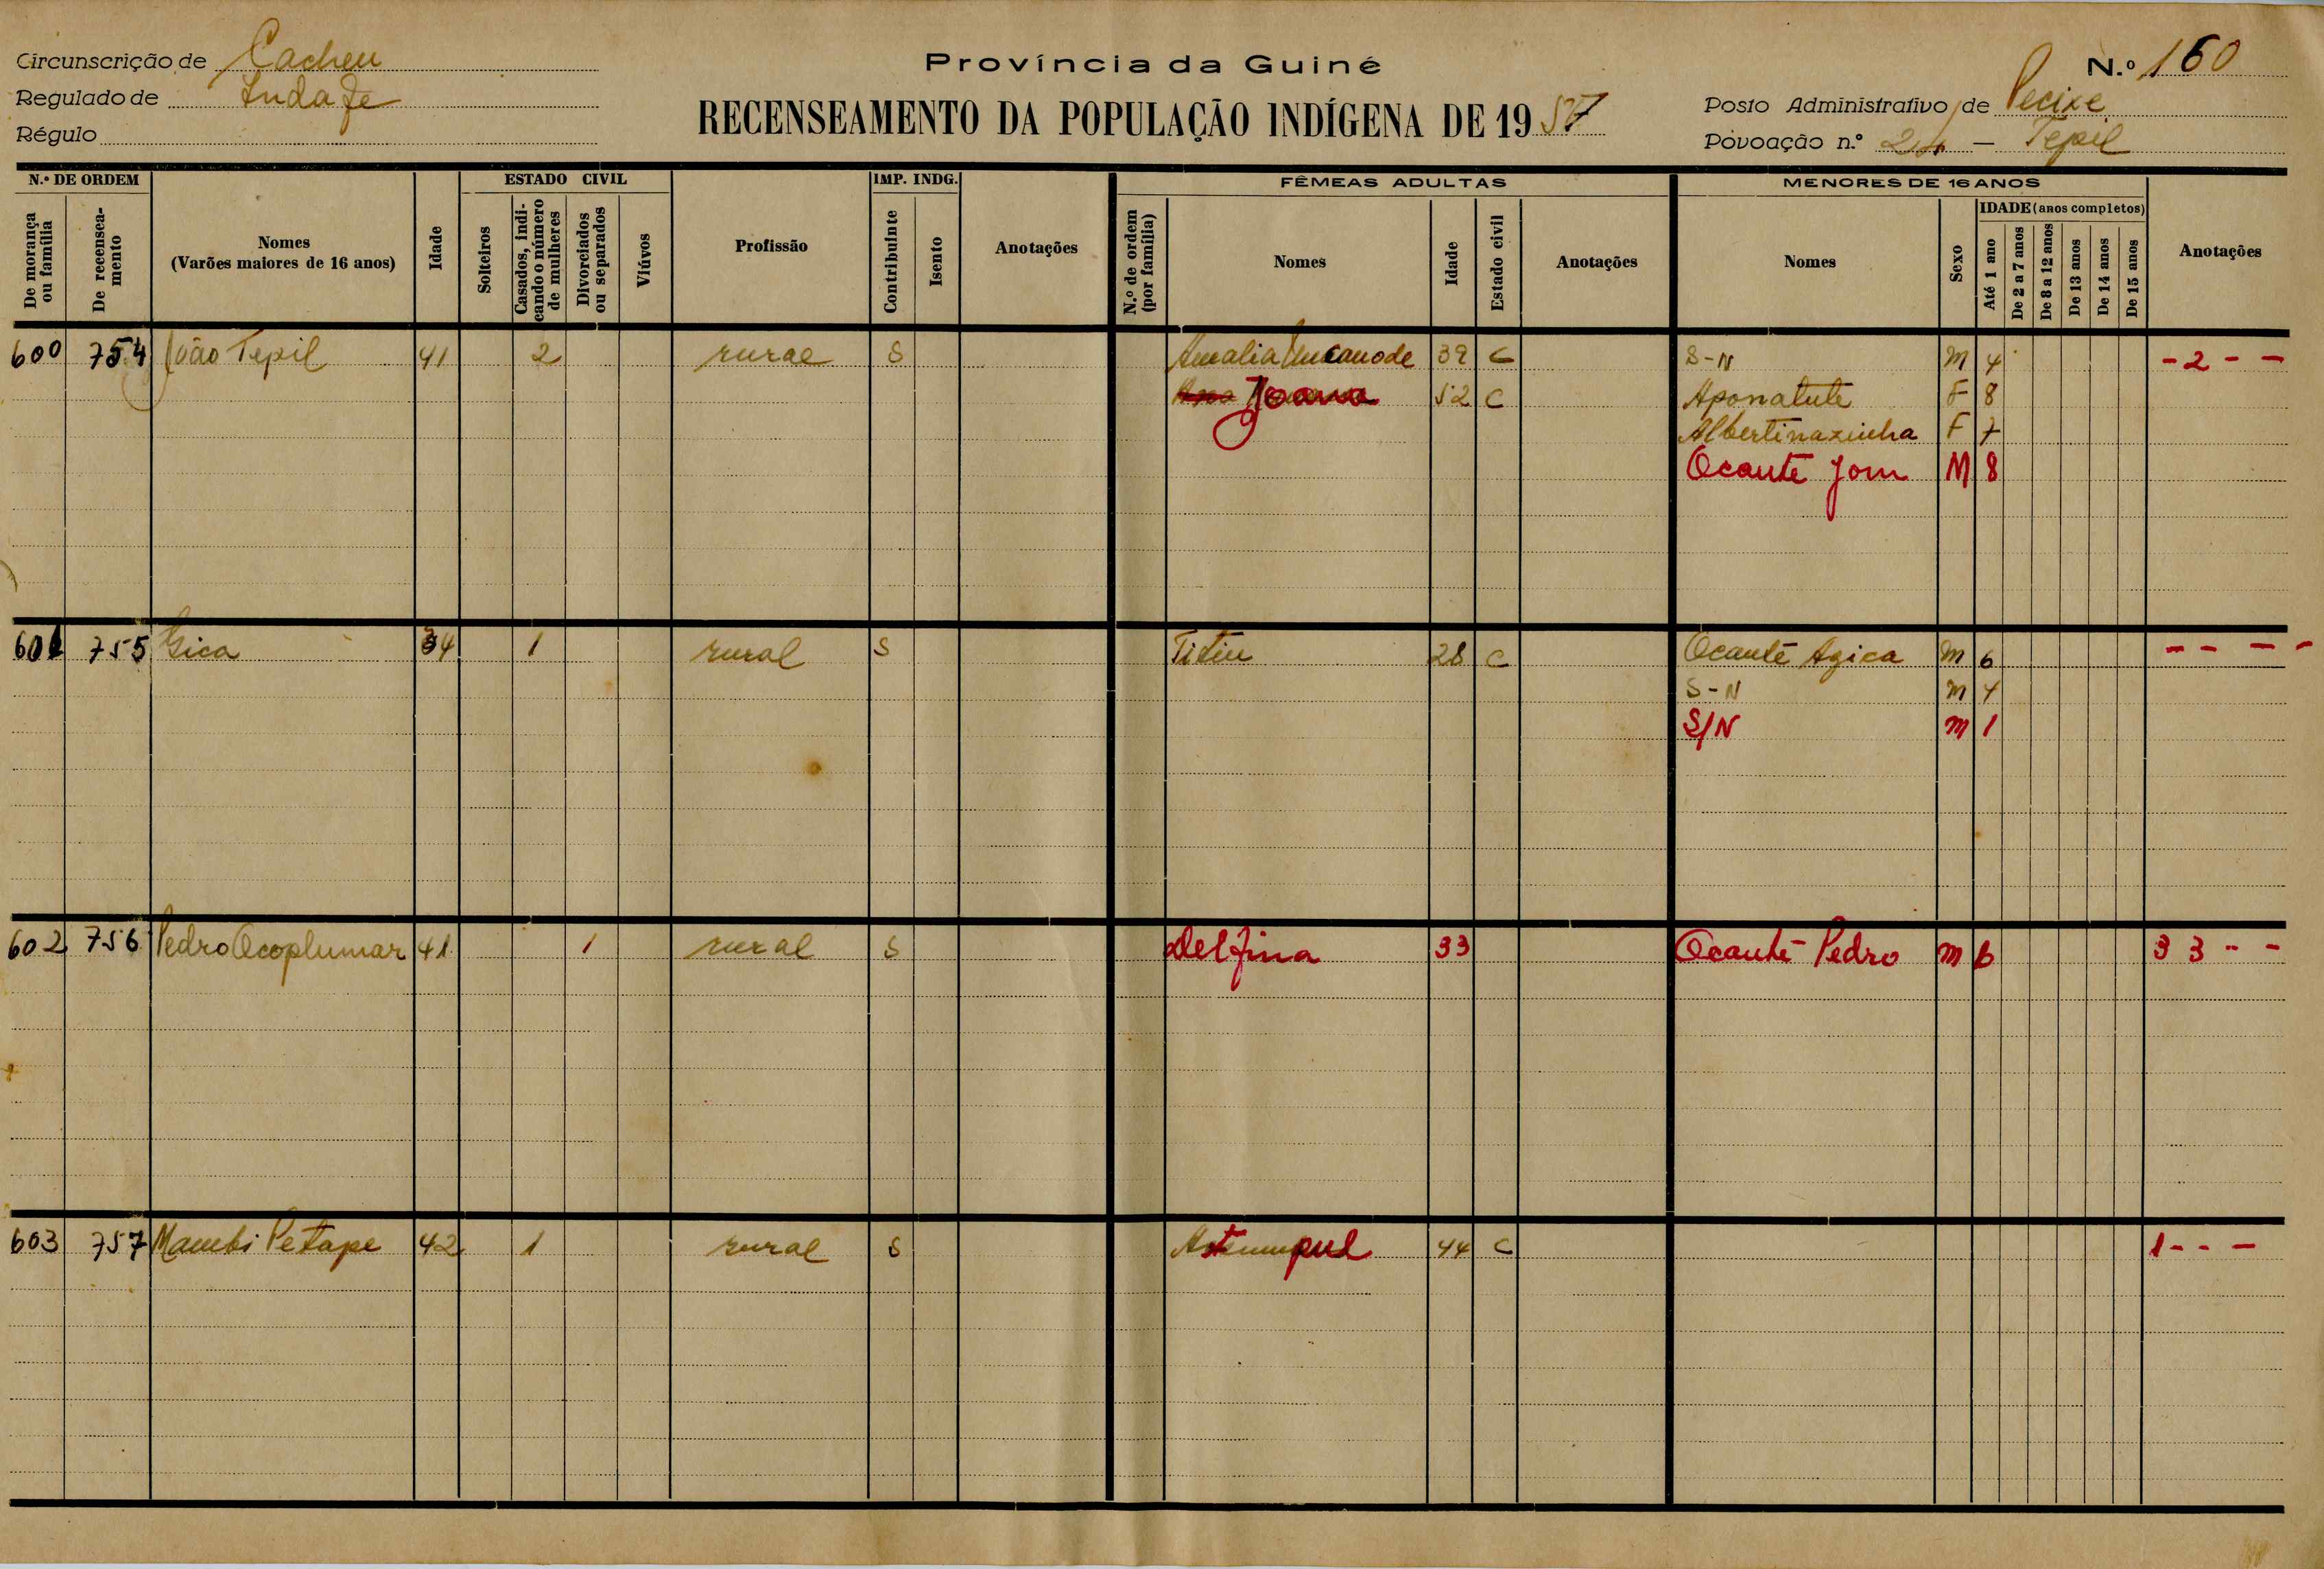 Província da Guiné
RECENSEAMENTO DA POPULAÇÃO INDÍGENA DE 1957
Circunscrição de Cacheu
Regulado de
Régulo
N.º 160
Posto Administrativo de Pecixe
Povoação n.º 24 - Tepil
N.º DE ORDEM
De morança ou família
De recenseamento
Nomes
(Varões maiores de 16 anos)
Idade
ESTADO CIVIL
Solteiros
Casados, indicando o número de mulheres
Divorciados ou separados
Viúvos
Profissão
IMP. INDG.
Contribuinte
Isento
Anotações
FÊMEAS ADULTAS
N.º de ordem (por família)
Nomes
Idade
Estado civil
Anotações
MENORES DE 16 ANOS
Nomes
Sexo
IDADE (anos completos)
Até 1 ano
De 2 a 7 anos
De 8 a 12 anos
De 13 anos
De 14 anos
De 15 anos
Anotações
600 754 João Tepil 41 2 rural S Amalia 39 C S-N M 4 - 2 - -
Joana 52 C Aponatute F 8
Albertinazinha F 7
Ocante Jom M 8
601 755 Gica 34 1 rural S Titiu 28 C Ocante Agica M 6 - - - -
S-N M 4
S/N M 1
602 756 Pedro Ocoplumar 41 1 rural S Delfina 33 Ocante Pedro M 6 3 3 - -
603 757 Mambi Petape 42 1 rural S 44 C 1 - - -